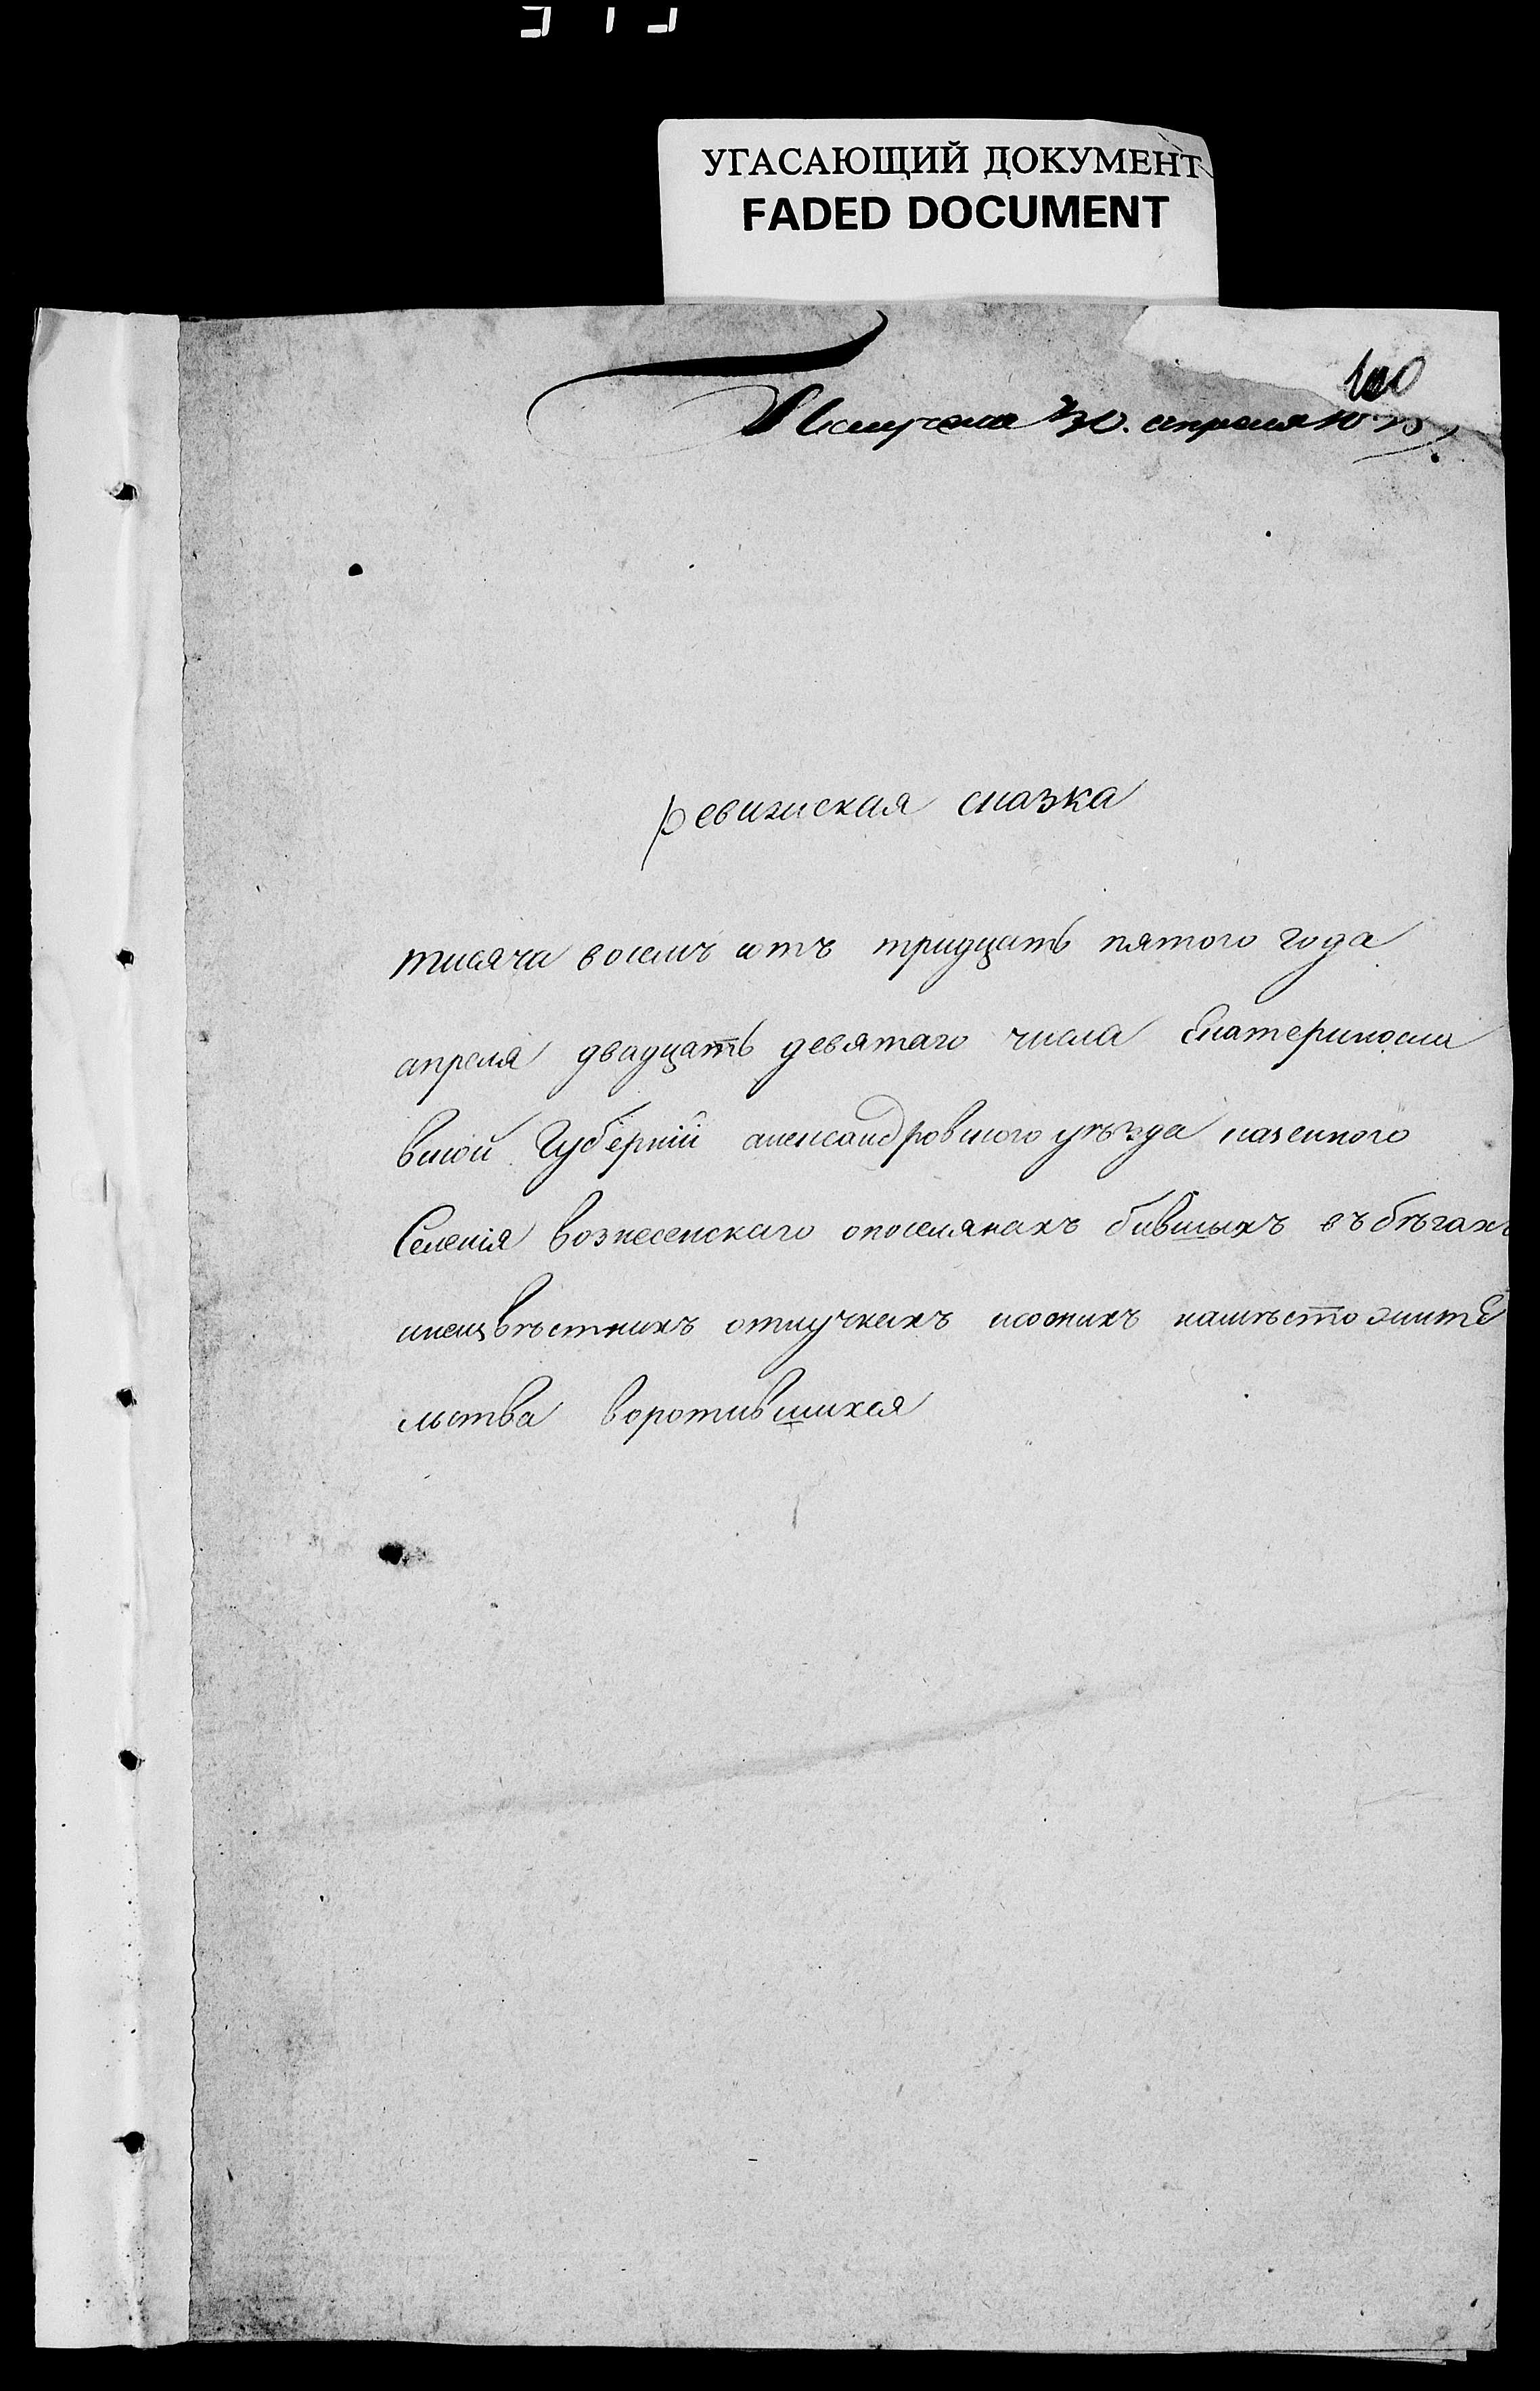 УГАСАЮЩИЙ ДОКУМЕНТ
FADED DOCUMENT
100
Получена 30. апреля
ревизиская сказка
тисяча восемъ сотъ тридцать пятого года
апреля двадцать девятаго числа Екатериносла
вской Губерніи александровского уѣзда казенного
Селенія вознесенскаго опоселянахъ бившыхъ въбѣгахъ
инеизвѣстнихъ отлучкахъ изонихъ намѣстожите
льства воротившихся